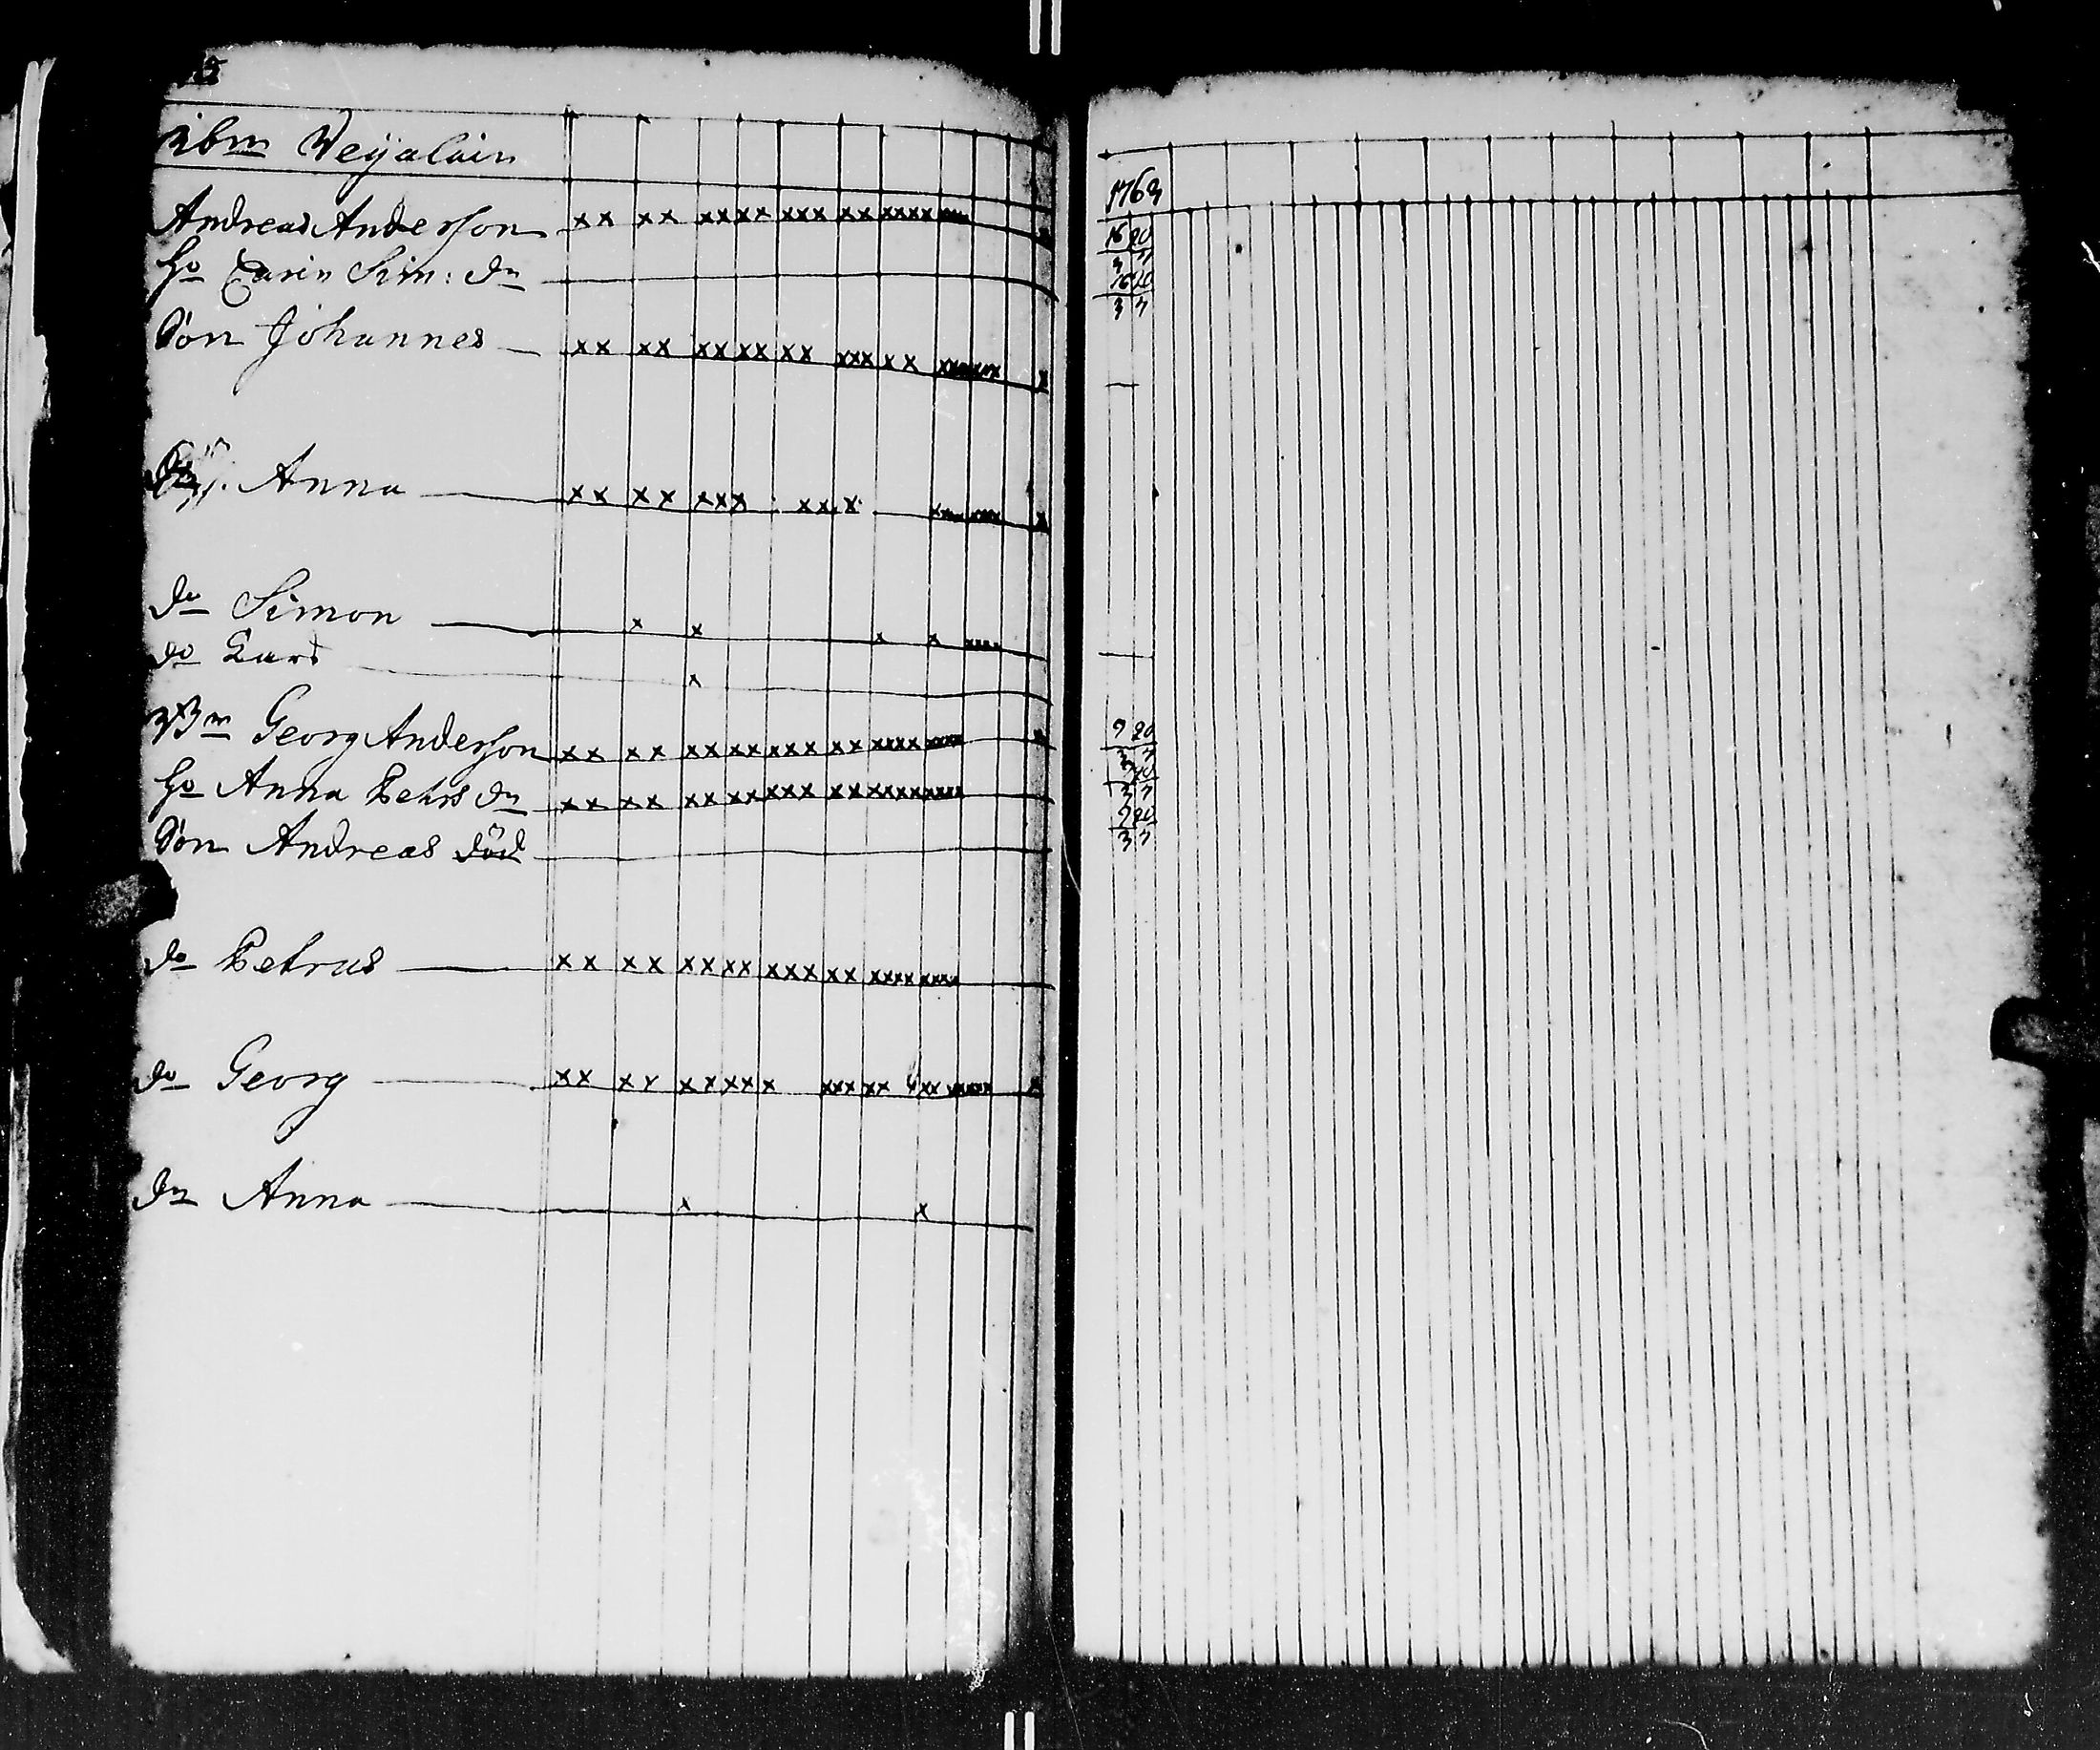 Weijalain
Andreas Anderſon xx xx xxxx xxx xx xxxx
Ho Carin Sim: dr
Son Johannes xx xx xx xx xx xxx xx
Anna xx xx xxx xxx
do Simon x x x x
do Lars x
Georg Anderſon xx xx xx xx xxx xx xxxx
Ho Anna Pehrs dr xx xx xx xx xxx xx
Son Andreas död
do Petrus xx xx xx xx xxx xx xxxx
do Georg xx xx xx xxx xxx xx
dr Anna x x
1763
16 20
3 7
16 20
3 7
9 20
3 7
3 7
9 20
3 7